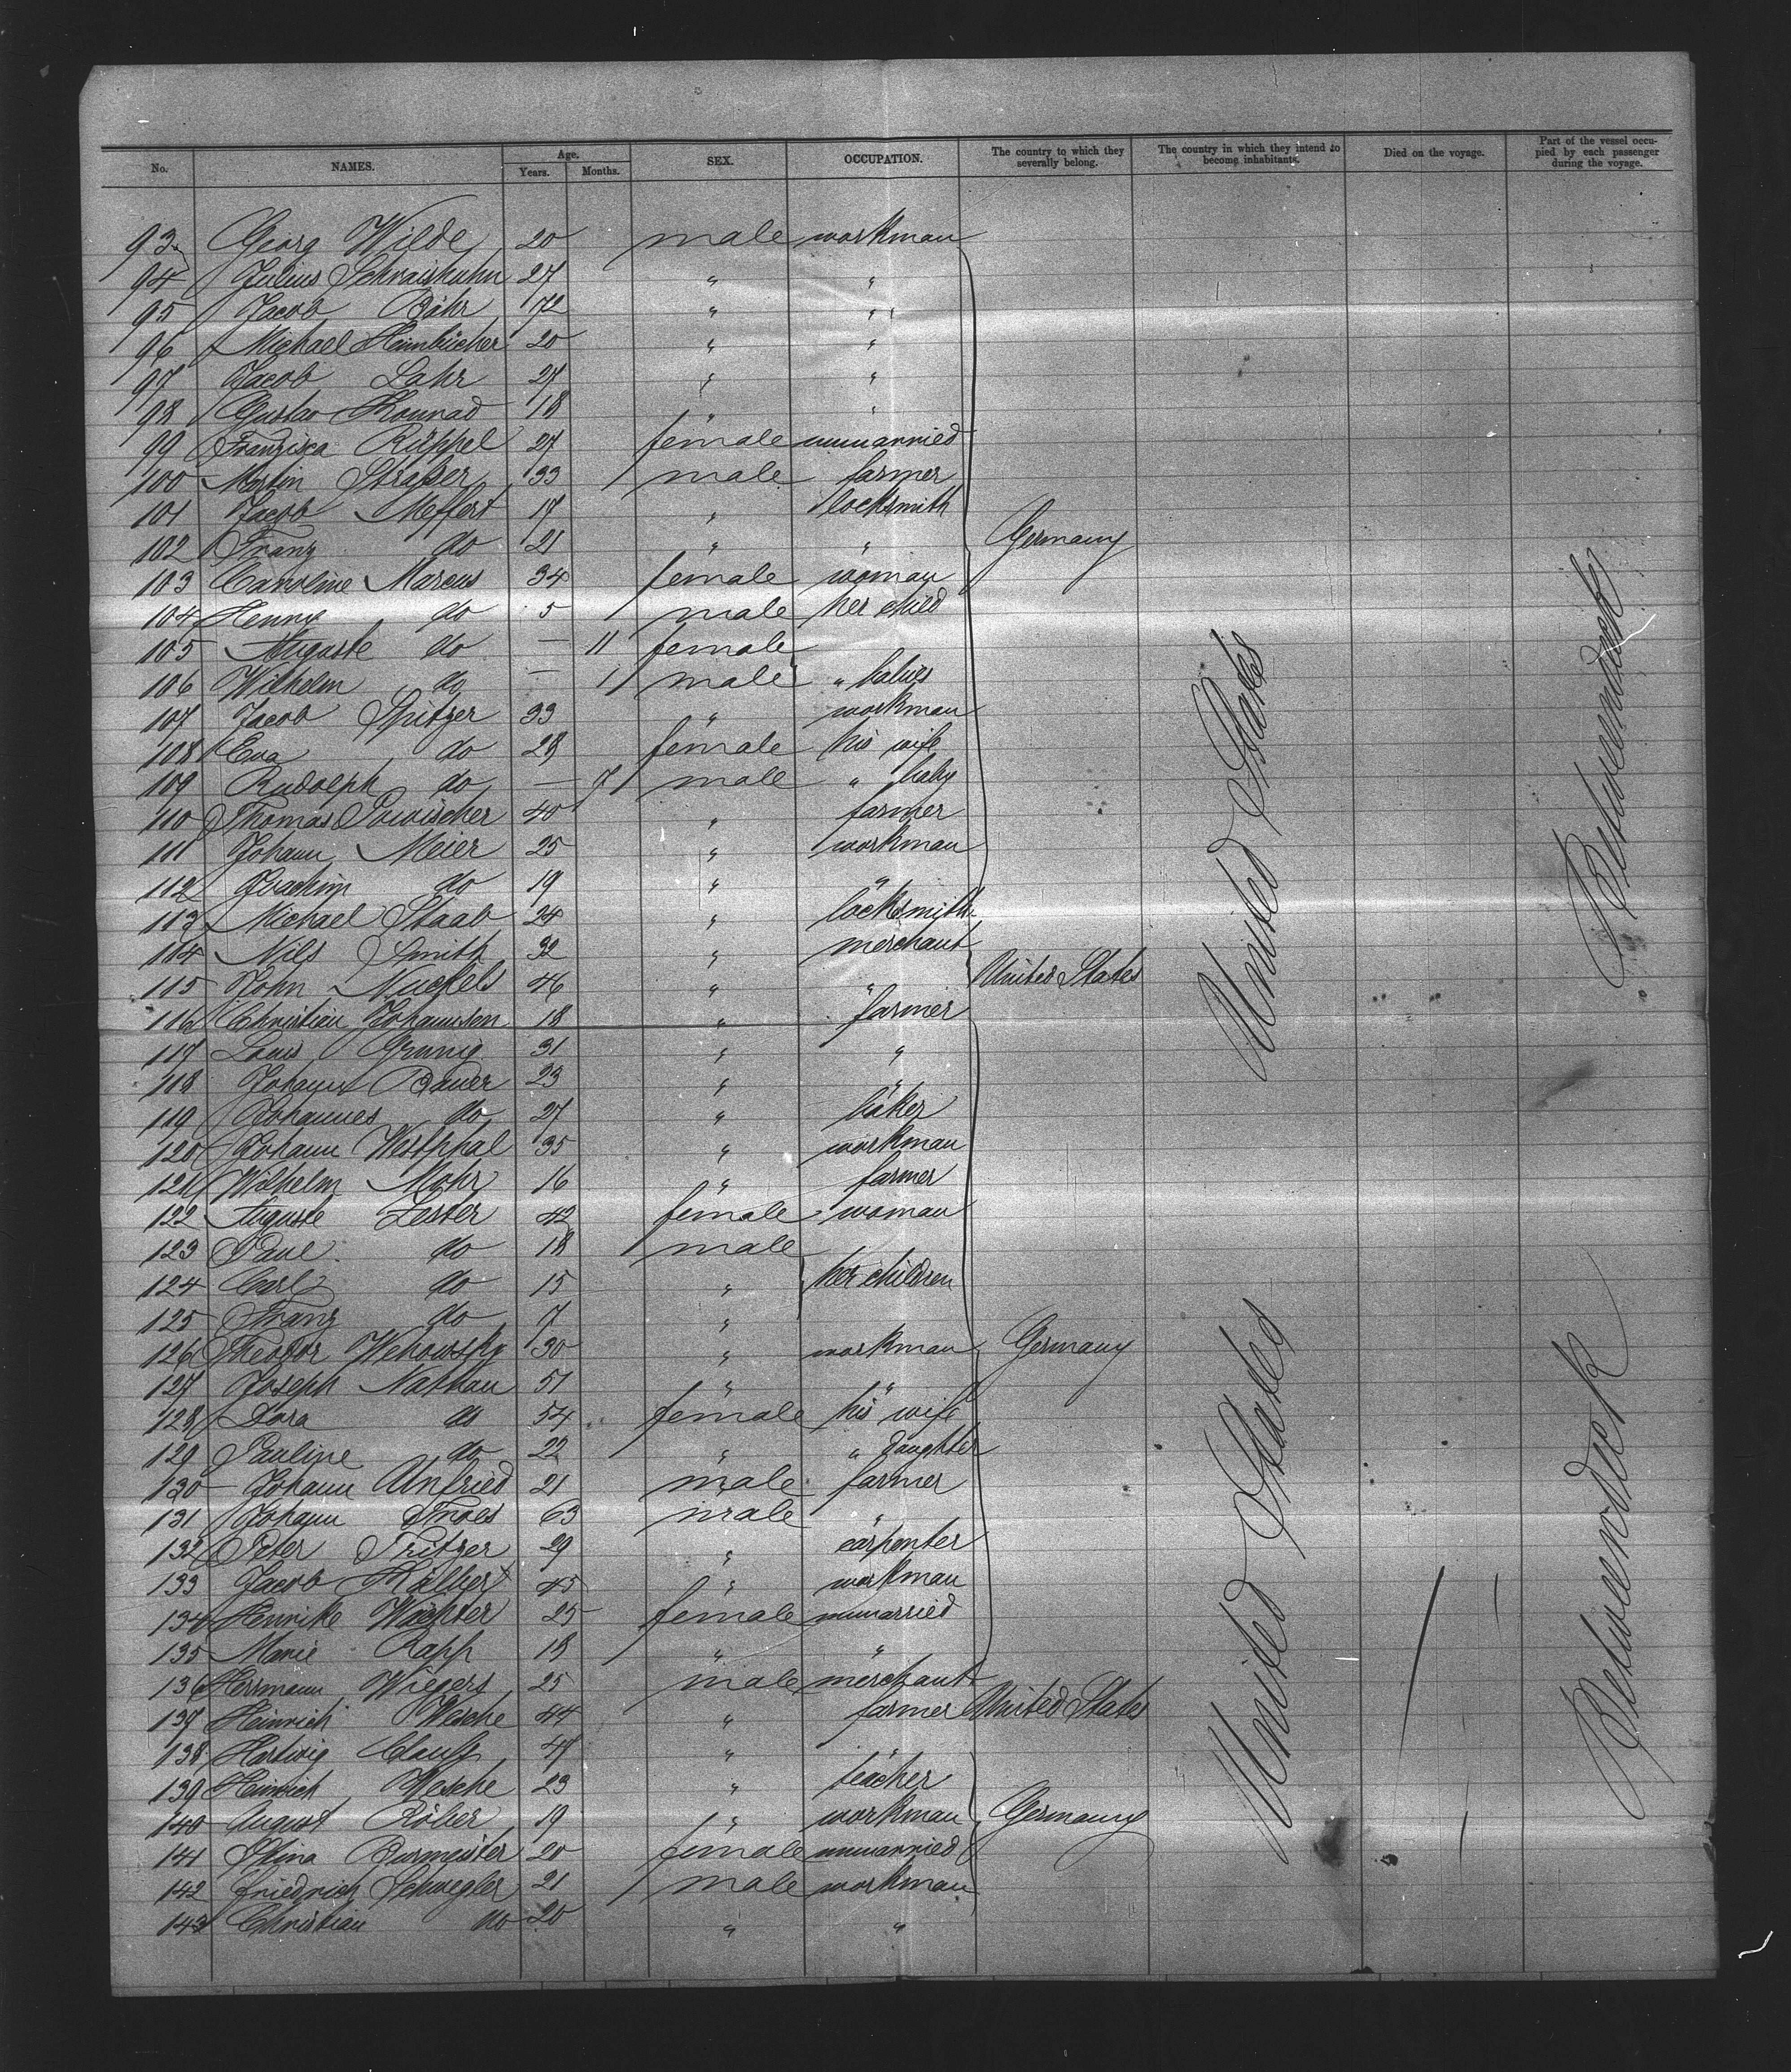 No. NAMES. Age. Years. Months. SEX. OCCUPATION. The country to which they severally belong. The country in which they intend to become inhabitants. Died on the voyage. Part of the vessel occupied by each passenger during the voyage.
93 Georg Wilde 20 male workman
94 Julius 27 " "
95 Jacob Bähr 72 " "
96 Michael 20 " "
97 Jacob Lahr 27 " "
98 Gustav Konrad 18 " "
99 Franziska Rüppel 27 female unmarried
100 Martin Straßer 33 male farmer
101 Jacob Meffert 17 " locksmith
102 Franz do 21 " " Germany
103 Caroline Marcus 34 female woman
104 Henny do 5 male her child
105 Auguste do — 11 female
106 Wilhelm do — 11 male " babies
107 Jacob Spitzer 33 " workman
108 Eva do 28 female his wife
109 Rudolph do — 7 male " baby
110 Thomas 40 " farmer
111 Johann Meier 25 " workman
112 Joachim do 19 " "
113 Michael Staab 24 " locksmith
114 Nils Smith 32 " merchant
115 John Nuckels 46 " " United States
116 Christian Johannsen 18 " farmer
117 Louis Grunig 31 " "
118 Johann Bauer 23 " "
119 Johannes do 27 " baker
120 Johann Westphal 35 " workman
121 Wilhelm Mohr 16 " farmer
122 Auguste Lester 42 female woman
123 Paul do 18 male
124 Carl do 15 " her children
125 Franz do 7 "
126 Theodor Wehowsky 30 " workman Germany
127 Joseph Nathan 51 " "
128 Dora do 54 female his wife
129 Pauline do 22 " " daughter
130 Johann Unfried 21 male farmer
131 Johann 63 male "
132 Peter Fritzer 29 " carpenter
133 Jacob 45 " workman
134 Henrike Wächter 25 female unmarried
135 Marie Rapp 18 " "
136 Herrmann Wiegers 25 male merchant
137 Heinrich Wesche 44 " farmer United States
138 Hartwig Clauss 47 " "
139 Heinrich Wesche 23 " teacher
140 August Röber 19 " workman Germany
141 Stina Burmeister 20 female unmarried
142 Friedrich Schwegler 21 male workman
143 Christian do 20 " "
United States
United States
Betweendeck
Betweendeck